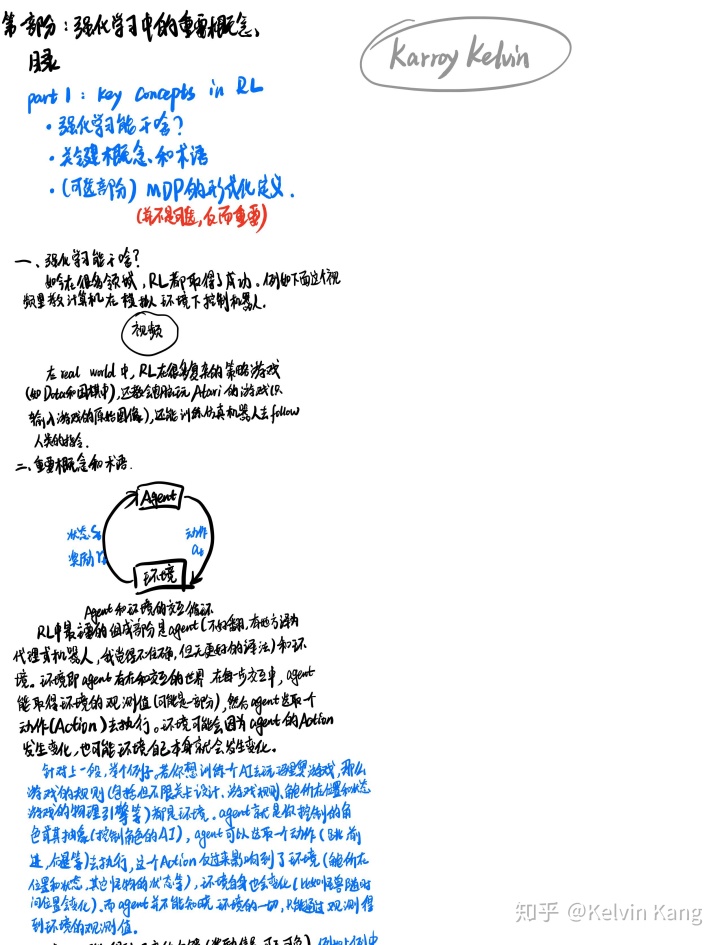 第一部分：强化学习中的重要概念、
目录
Karroy Kelvin
part 1 : Key Concepts in RL
• 强化学习能干啥?
• 关键概念、和术语
• (可选部分) MDP的形式化定义.
(并不是可选,反而重要)
一、强化学习能干啥?
如今在很多领域，RL都取得了成功。例如下面这个视
频里教计算机在模拟环境下控制机器人.
视频
在real world中，RL在很多复杂的策略游戏
(如Dota和围棋中),还教会电脑玩Atari的游戏(只
输入游戏的原始图像),还能训练仿真机器人去follow
人类的指令.
二、重要概念和术语.
Agent
状态St
奖励rt
动作
at
环境
Agent和环境的交互循环
RL中最主要的组成部分是agent(不好翻,有地方译为
代理或机器人，我觉得不准确,但无更好的译法)和环
境。环境即agent存在和交互的世界 在每一步交互中，agent
能取得环境的观测值(可能是一部分),然后agent选取一个
动作(Action)去执行。环境可能会因为agent的Action
发生变化,也可能环境自己本身就会发生变化。
针对上一段,举个例子.若你想训练个AI去玩马里奥游戏,那么
游戏的规则(包括但不限关卡设计、游戏规则、角色所在位置和状态
游戏的物理引擎等)都是环境。agent就是你控制的角
色或其抽象(控制角色的AI),agent可以选取一个动作(比如前
进,后退等)去执行,这个Action反过来影响到了环境(角色所在
位置和状态,其它怪物的状态等),环境自身也会变化(比如怪兽随时
间位置会变化).而agent并不能知晓环境的一切,只能通过观测得
到环境的观测值.
知乎 @Kelvin Kang